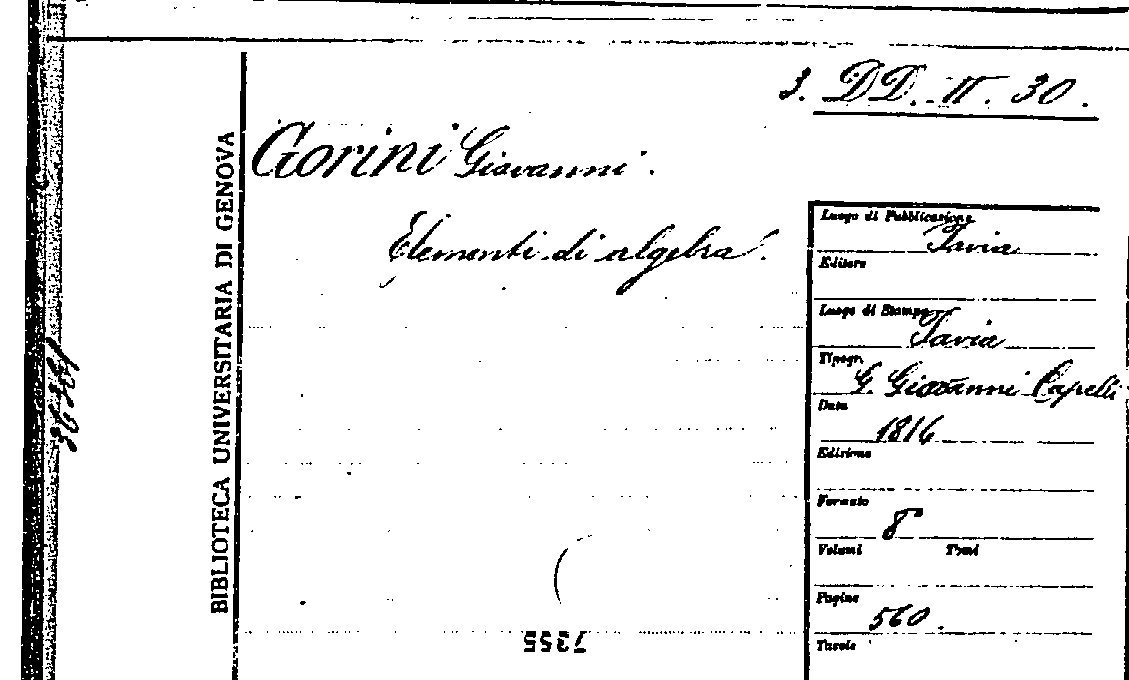 3. DD. II. 30.
Gorini Giovanni.
Elementi di algebra.
BIBLIOTECA UNIVERSITARIA DI GENOVA
Luogo di Pubblicazione
Pavia
Editore
Luogo di Stampa
Pavia
Tipogr.
G. Giovanni Capelli
Data
1816
Edizione
Formato
8°
Volumi Tomi
Pagine
560.
Tavole
7355